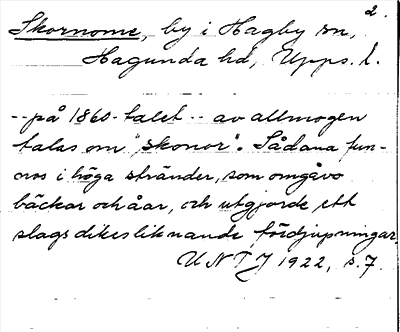 2.
Skornome, by i Hagby sn,
Hagunda hd, Upps. l.
--på 1860-talet-- av allmogen
talas om "skonor". Sådana fun-
nos i höga stränder, som omgåvo
bäckar och åar, och utgjorde ett
slags dikesliknande fördjupningar.
UNTJ 1922, s. 7.